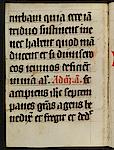 turbam quia ecce ia
triduo sustinent me
nec habent quod mā
ducent et si dimisero
eos ieiunos deficiēt
in uia
accipiens ih̄c septem
panes grās agens be
nedixit et fregit et ded